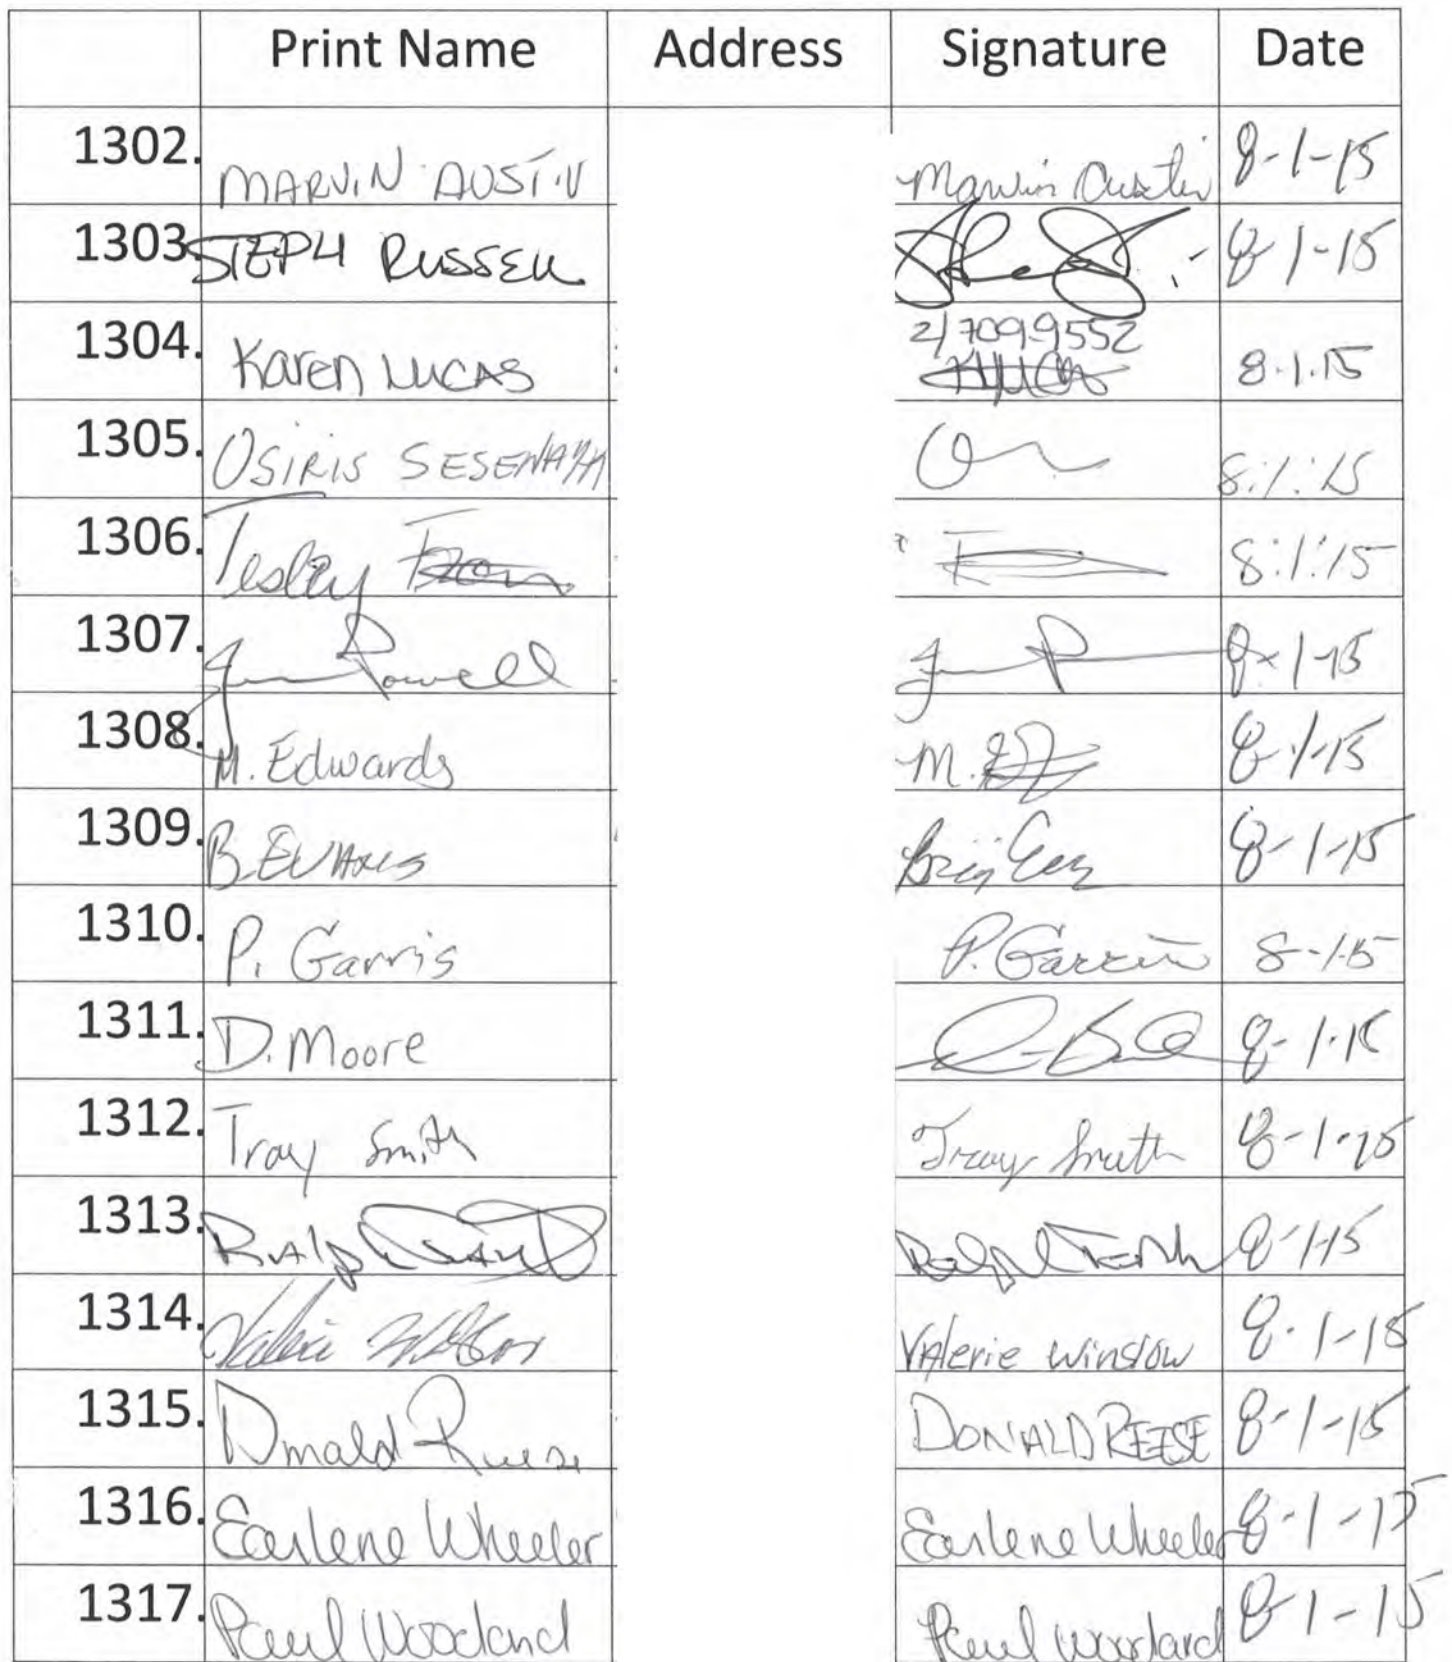 Print Name Address Signature Date
1302. MARVIN AUSTIN Marvin Austin 8-1-15
1303. STEPH RUSSELL 8-1-15
1304. Karen LUCAS 2/7099552 8.1.15
1305. OSIRIS 8:1:15
1306. Tesley 8:1:15
1307. Powell 8-1-15
1308. M. Edwards M. 8-1-15
1309. B. EVANS 8-1-15
1310. P. Garris P. Garris 8-1-15
1311. D. Moore 8-1-15
1312. Troy Smith Troy Smith 8-1-15
1313. Ralph Ralph 8-1-15
1314. Valerie Valerie Winslow 8-1-15
1315. Donald Reese DONALD REESE 8-1-15
1316. Earlene Wheeler Earlene Wheeler 8-1-15
1317. Paul Woodard Paul Woodard 8-1-15